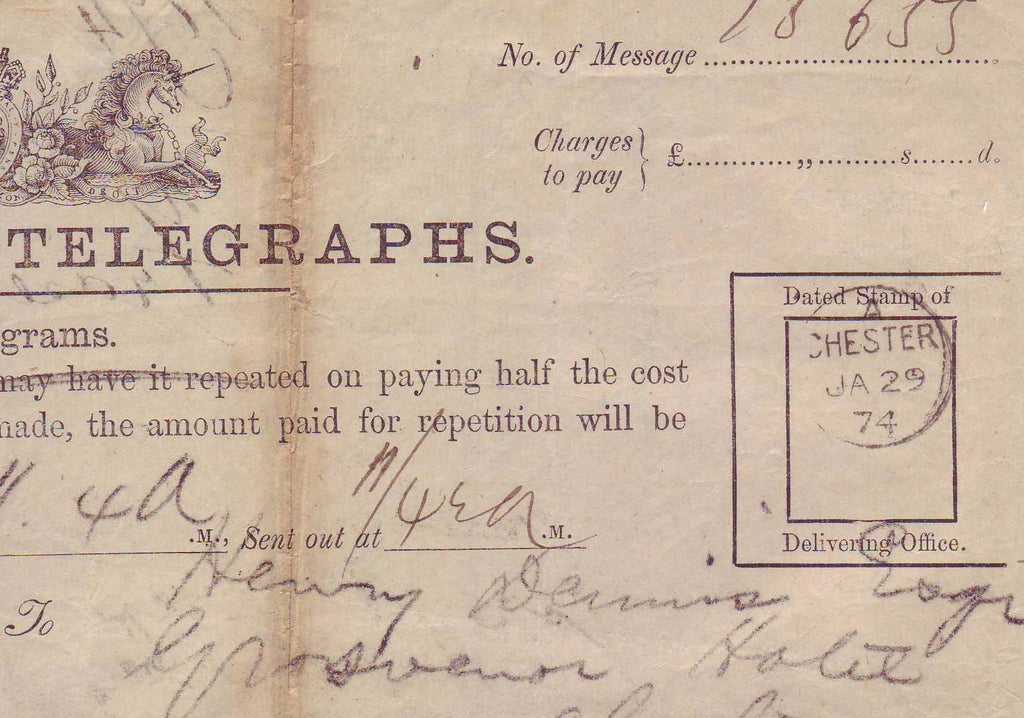 No. of Message
655
Charges
to pay } £ „ s. d.
DROIT
TELEGRAPHS.
grams.
may have it repeated on paying half the cost
made, the amount paid for repetition will be
Dated Stamp of
A
CHESTER
JA 29
74
Delivering Office.
4 A .M., Sent out at 11/42 A .M.
To Henry Dennis Esqr
Grosvenor Hotel